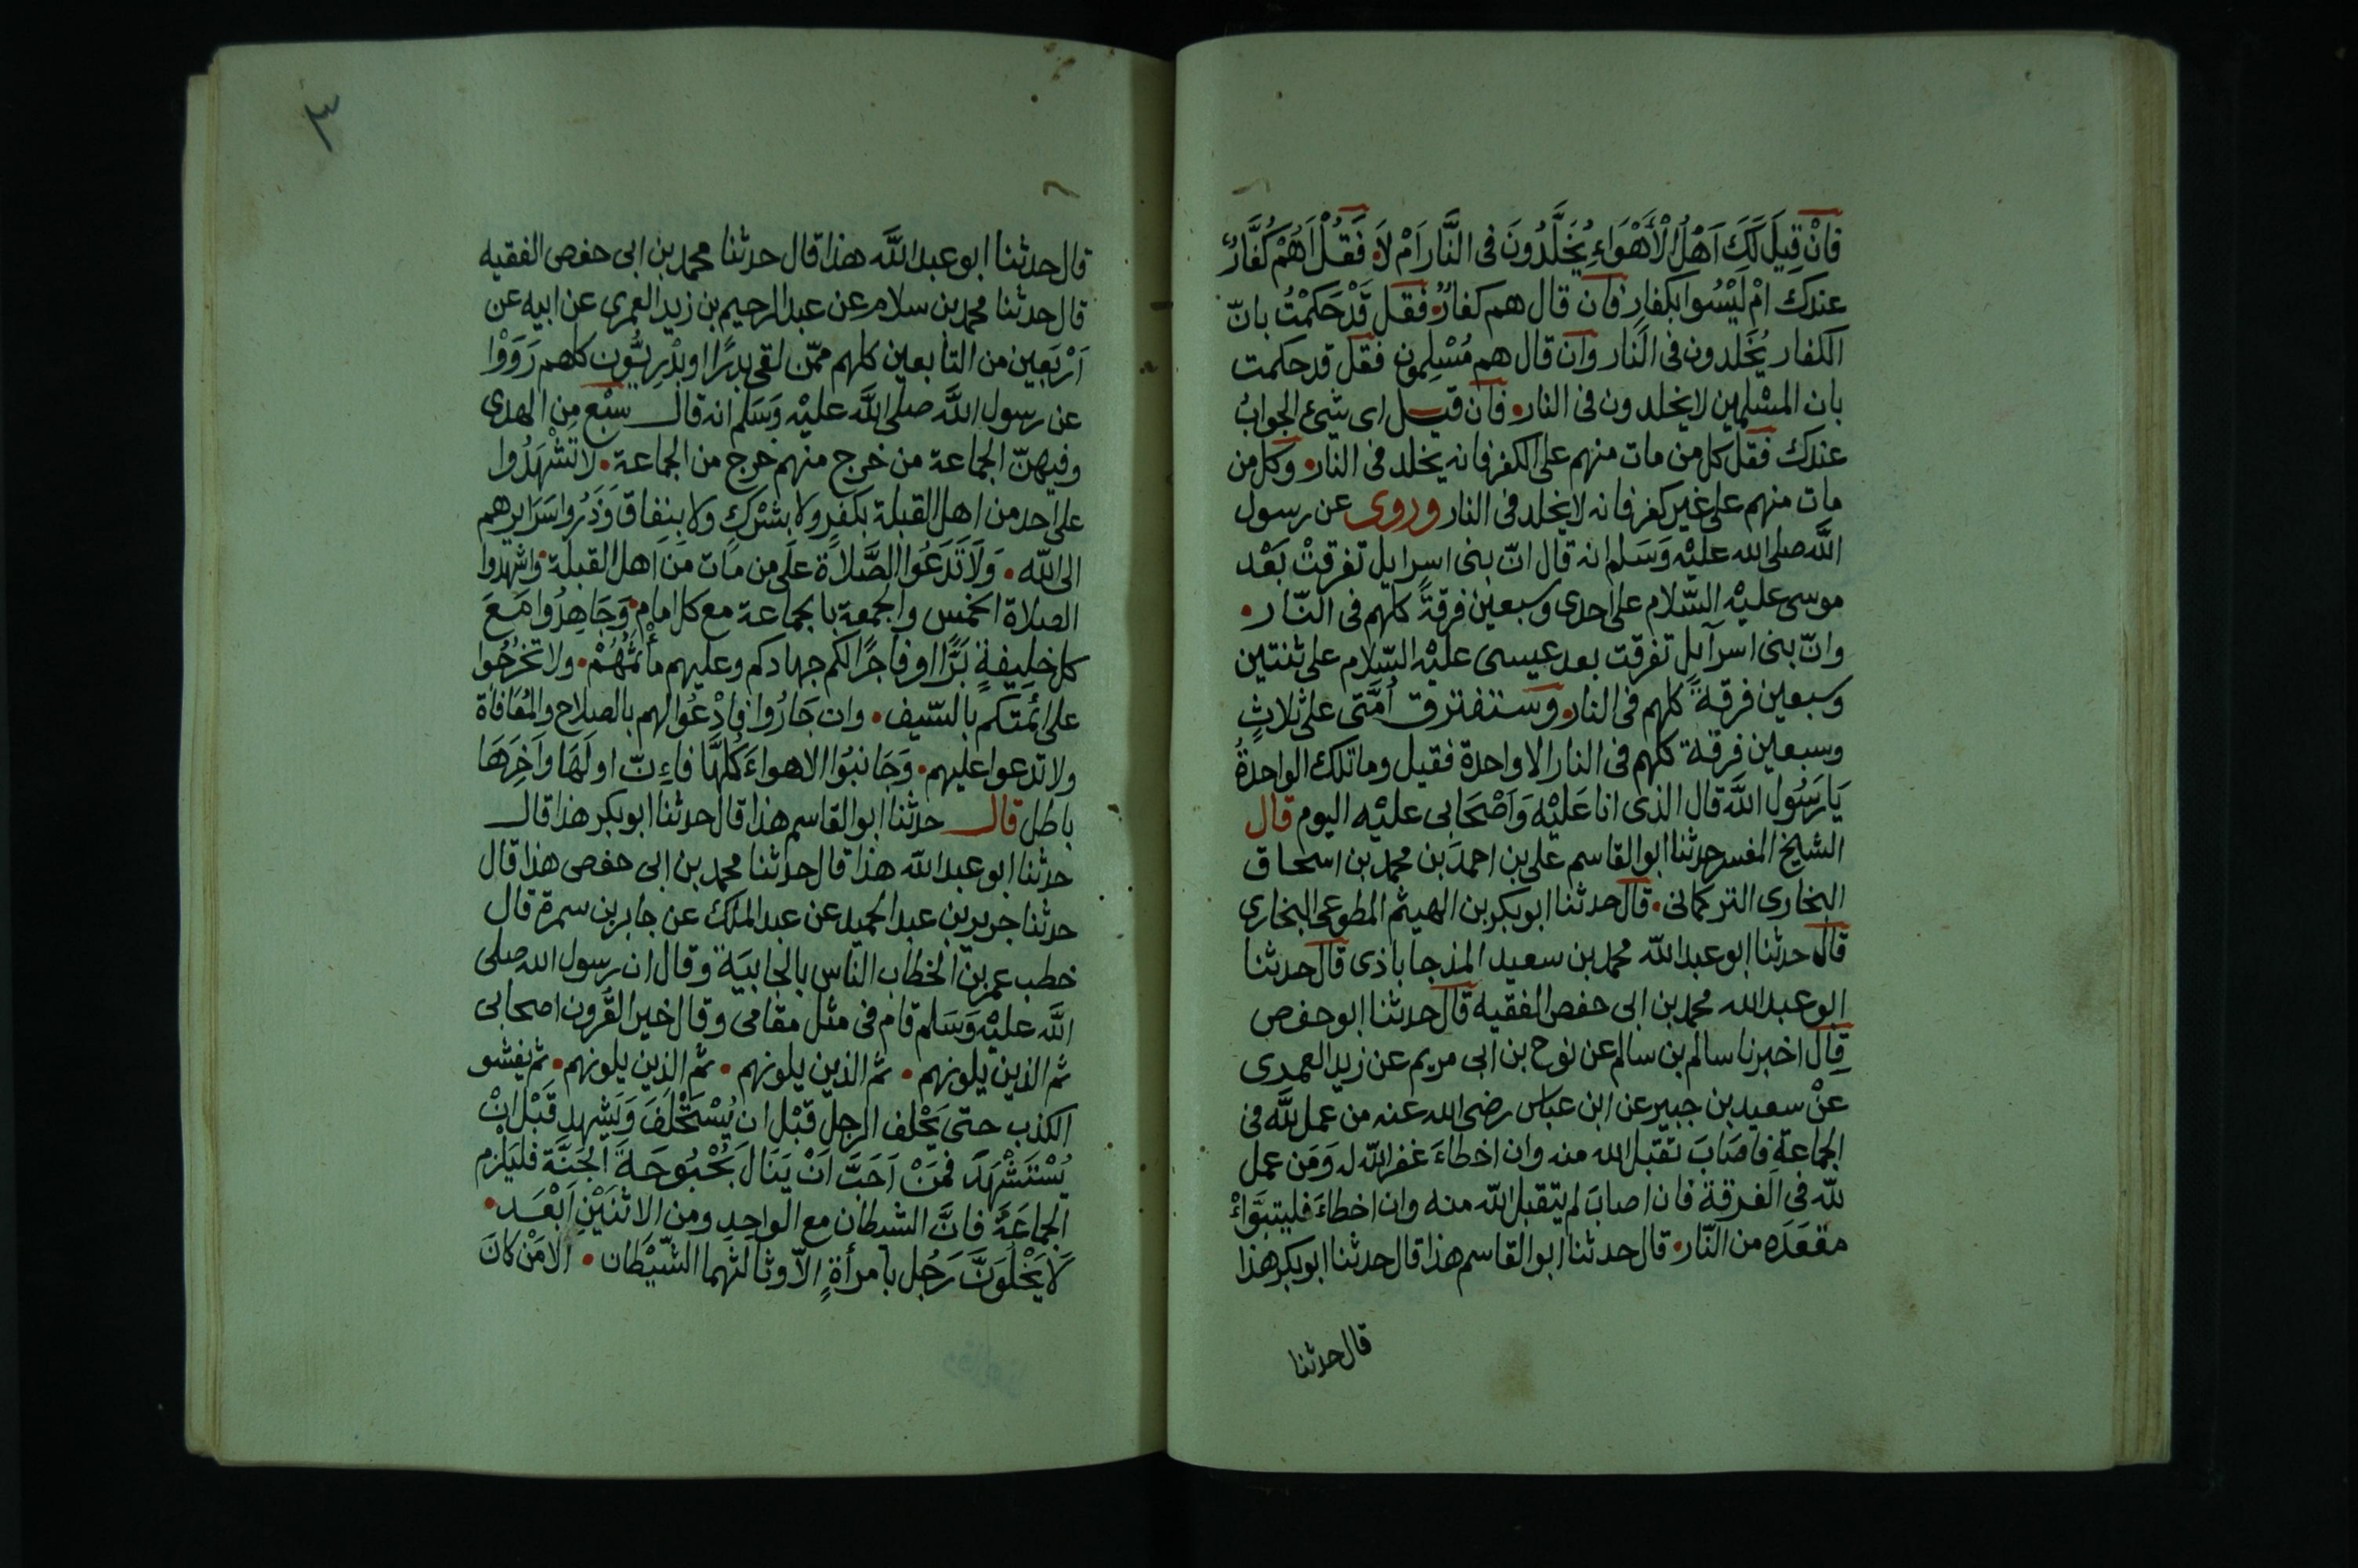 فَاِنْ قِيلَ لَكَ اَهْلُ الْاَهْوَاءِ يُخَلَّدُونَ فى النَّار اَمْ لاَ فَقُلْ اَهُمْ كُفَّارٌ
عندك امْ لَيْسُوا بكفارٍ فان قال هم كفارٌ فقل قَدْ حَكَمْتُ بانّ
الكفار يُخَلدون فى النار وان قال هم مُسْلِمون فقل قد حكمت
بان المسْلِمين لا يخلدون فى النار فان قيل اى شئ الجوابُ
عندك فقل كل من مات منهم على الكفر فانه يخلد فى النار وكل من
مات منهم على غير كفر فانه لا يخلد فى النار وروى عن رسول
اللَّه صلى الله عليْه وَسَلم انه قال انّ بنى اسرايل تفرقتْ بَعْد
موسى عليْه السّلام على احدى وسبعين فرقةً كلهم فى النّار
وانّ بنى اسرآيل تفرقت بعد عيسى عليْه السّلام على ثنتين
وسبعين فرقةً كلهم فى النار وستفترق اُمَّتى على ثلاثٍ
وسبعين فرقة كلهم فى النار الا واحدة فقيل وما تلك الواحدةُ
يَا رَسُول اللَّه قال الذى انا عَليْه وَاَصْحَابى عليْه اليوم قال
الشيخ المفسر حدثنا ابو القاسم على بن احمدَ بن محمد بن اسحاق
البخارى التركمانى قال حدثنا ابو بكر بن الهيثم المطوعى البخارى
قال حدثنا ابو عبد الله محمد بن سعيد المذجاباذى قال حدثنا
ابو عبد الله محمد بن ابى حفص الفقيه قال حدثنا ابو حفص
قال اخبرنا سالم بن سالم عن نوح بن ابى مريم عن زيد العمدى
عنْ سعيد بن جبير عن ابن عباس رضى الله عنه من عمل للَّه فى
الجماعةِ فاصَابَ تقبل الله منه وان اخطاءَ غفر الله له وَمَن عمل
للّه فى الفرقة فان اصابَ لم يتقبل الله منه وان اخطاءَ فليتبَّواءْ
مقعَدَه من النّار قال حدثنا ابو القاسم هذا قال حدثنا ابو بكر هذا
قال حدثنا
٣
قال حدثنا ابو عبد اللَّه هذا قال حدثنا محمد بن ابى حفص الفقيه
قال حدثنا محمد بن سلام عن عبد الرحيم بن زيد العمرى عن ابيه عن
اَرْبَعِين من التابعين كلهم ممّن لقى بدرًا او بدْرِيُّون كلهم رَوَوْا
عن رسول اللَّه صلى اللَّه عليْه وَسَلم انه قال سبْع مِن الهدى
وفيهنّ الجماعة من خرج منهم خرج من الجماعة لا تشْهَدُوا
على احد من اهل القبلة بكفرٍ ولا بشركٍ ولا بنفاق وَذَرُوا سَرَايرهم
الى الله وَلَا تَدَعُوا الصَّلاَة على من مات مَن اهل القبلة واشهدوا
الصلاة الخمْس والجمعة بالجماعة مع كل امام وَجَاهِدُوا مَعَ
كل خليفةٍ بَرًّا او فاجرًا لكم جهادكم وعليهم مأثَمُهُمْ ولا تخرُجُوا
على ائمّتكم بالسّيف وان جَارُوا فادْعُوا لهم بالصلاح والمُعَافاة
ولا تدعوا عليهم وَجَانبُوا الاهواءَ كُلهَّا فاءِنّ اولَهَا وآخِرَهَا
باطل قال حدثنا ابو القاسم هذا قال حدثنا ابو بكر هذا قال
حدثنا ابو عبد الله هذا قال حدثنا محمد بن ابى حفص هذا قال
حدثنا جرير بن عبد الحميد عن عبد الملك عن جابر بن سمرة قال
خطب عمر بن الخطاب الناس بالجابيَة وقال ان رسول الله صلى
اللَّه عليْه وَسَلم قام فى مثل مقامى وقال خير القُرون اصحابى
ثم الذين يلونهم ثم الذين يلونهم ثم الذين يلونهم ثم يفشو
الكذب حتى يَحْلف الرجل قبْل ان يُسْتَحْلَفَ وَيَشهد قَبْل انْ
يُسْتَشْهَدَ فَمَنْ اَحَبَّ اَنْ يَنَالَ بُحْبُوحَةَ الجَنَّة فليَلْزم
الجمَاعَةَ فانَّ الشيطان مع الواحِدِ ومن الاثنَيْنِ اَبْعَد
لَا يَخْلُوَنَّ رَجُل بامرأةٍ الاّ وثالثهما الشّيْطان الا مَنْ كانَ